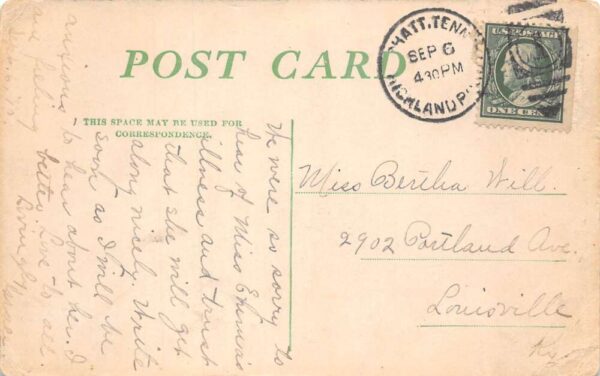 POST CARD
THIS SPACE MAY BE USED FOR
CORRESPONDENCE.
CHATT. TENN.
SEP 6
430 PM
HIGHLAND P
U.S. POSTAGE
ONE CENT
Miss Bertha Will.
2902 Portland Ave.
Louisville
Ky.
We were so sorry to
hear of Miss Emma's
illness and trust
that she will get
along nicely. Write
soon as I will be
anxious to hear about her. I
am feeling better. Love to all.